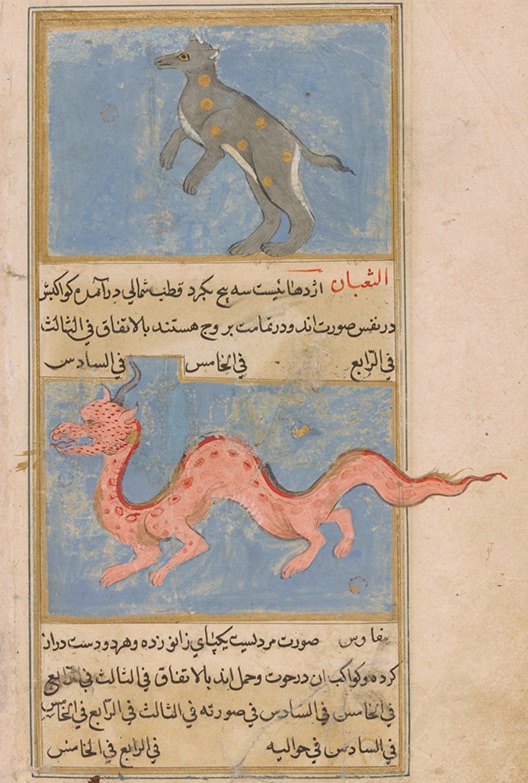 الثعبان اژدهائیست سه پیچ بگرد قطب شمالی درآمده کواکبش
در نفس صورت اند و در تمامت بروج هستند بالاتفاق فی الثالث
فی الرابع فی الخامس فی السادس
صورت مردیست یکپای زانو زده و هر دو دست دراز
کرده و کواکب آن در حوت و حمل اند بالاتفاق فی الثالث فی الرابع
فی الخامس فی السادس فی صورته فی الثالث فی الرابع فی الخامس
فی السادس فی حوالیه فی الرابع فی الخامس